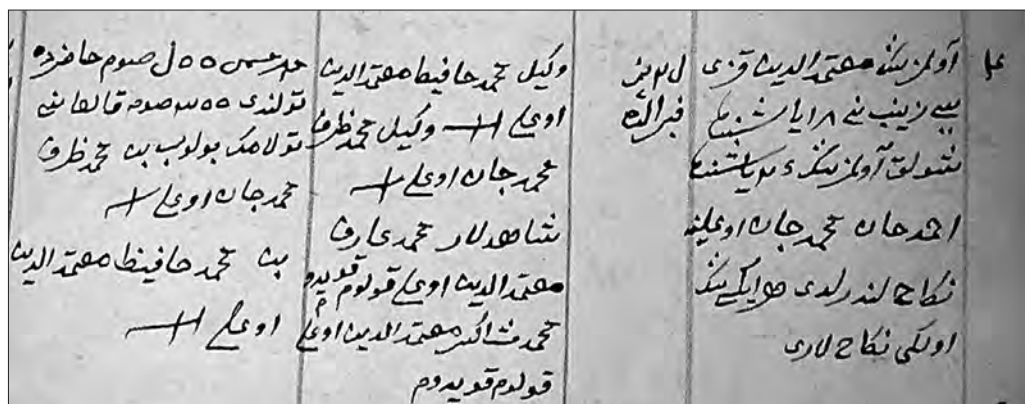 آولمزننك معتمد الدين قزى
بيبي زينب نى ١٨ ياشنده
شولوق آولمزننك ياشنده
احمدجان محمدجان اوغلينه
نكاح لندرلدى هر ايكى سينك
اولكى نكاح لارى
فبرالده
وكيل محمد حافيظ معتمد الدين
اوغلى وكيل محمد ظريف
محمدجان اوغلى
شاهدلار محمد عارف
معتمد الدين اوغلى قولوم قويدم
محمد شاكر معتمد الدين اوغلى
قولوم قويدوم
صوم حاضرده
تولندى صوم قالغانى
تولامك بولوب بن محمد ظريف
محمدجان اوغلى
بن محمد حافيظ معتمد الدين
اوغلى